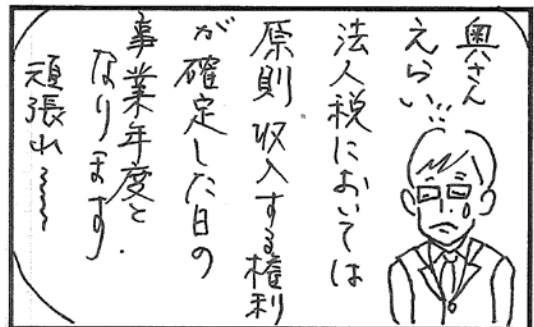 奥さん
えらい…
法人税においては
原則 収入する権利
が確定した日の
事業年度と
なります.
頑張れ〜〜